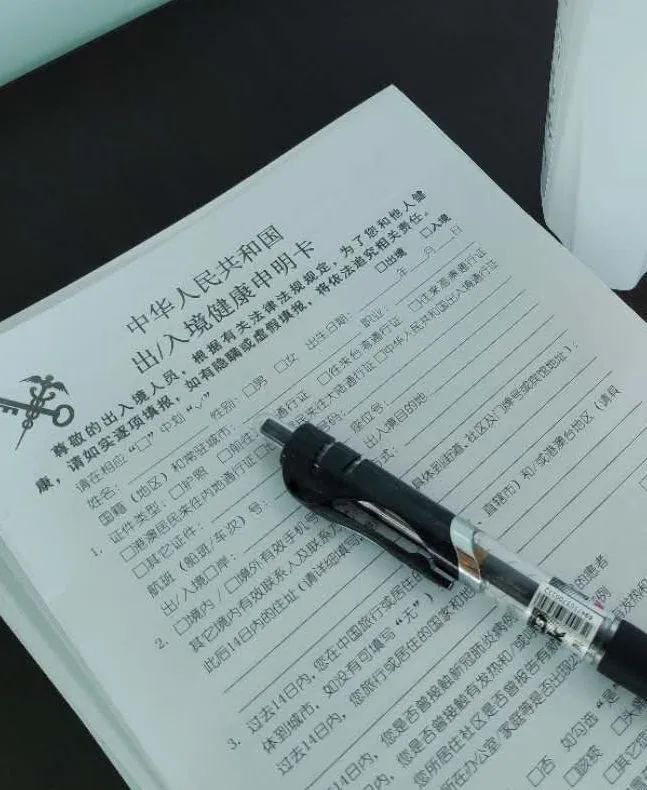 中华人民共和国
出/入境健康申明卡
尊敬的出入境人员，根据有关法律法规规定，为了您和他人健
康，请如实逐项填报，如有隐瞒或虚假填报，将依法追究相关责任。
请在相应“□”中划“√” □出境 □入境
姓名： 性别：□男 □女 出生日期： 年 月 日
国籍（地区）和常驻城市： 职业：
1. 证件类型：□护照 □前往 通行证 □往来台湾通行证 □往来港澳通行证
□港澳居民来往内地通行证 居民来往大陆通行证 □中华人民共和国出入境通行证
□其它证件： 号码：
航班（船班/车次）号： 座位号：
出/入境口岸： 出入境目的地
2. □境内/□境外有效手机号 方式：
其它境内有效联系人及联系方
此后14日内的住址（请详细填写， 具体到街道、社区及门牌号或宾馆地址）：
3. 过去14日内，您在中国旅行或居住的 直辖市）和/或港澳台地区（请具
体到城市，如没有可填写“无”）
过去14日内，您旅行或居住的国家和地
日内，您是否曾接触新冠肺炎病例 的患者
内，您是否曾接触有发热和/或 例
您所居住社区是否曾报告有新 发热和
所在办公室/家庭等是否出现
□否 如勾选“是”
□咳嗽
□其它